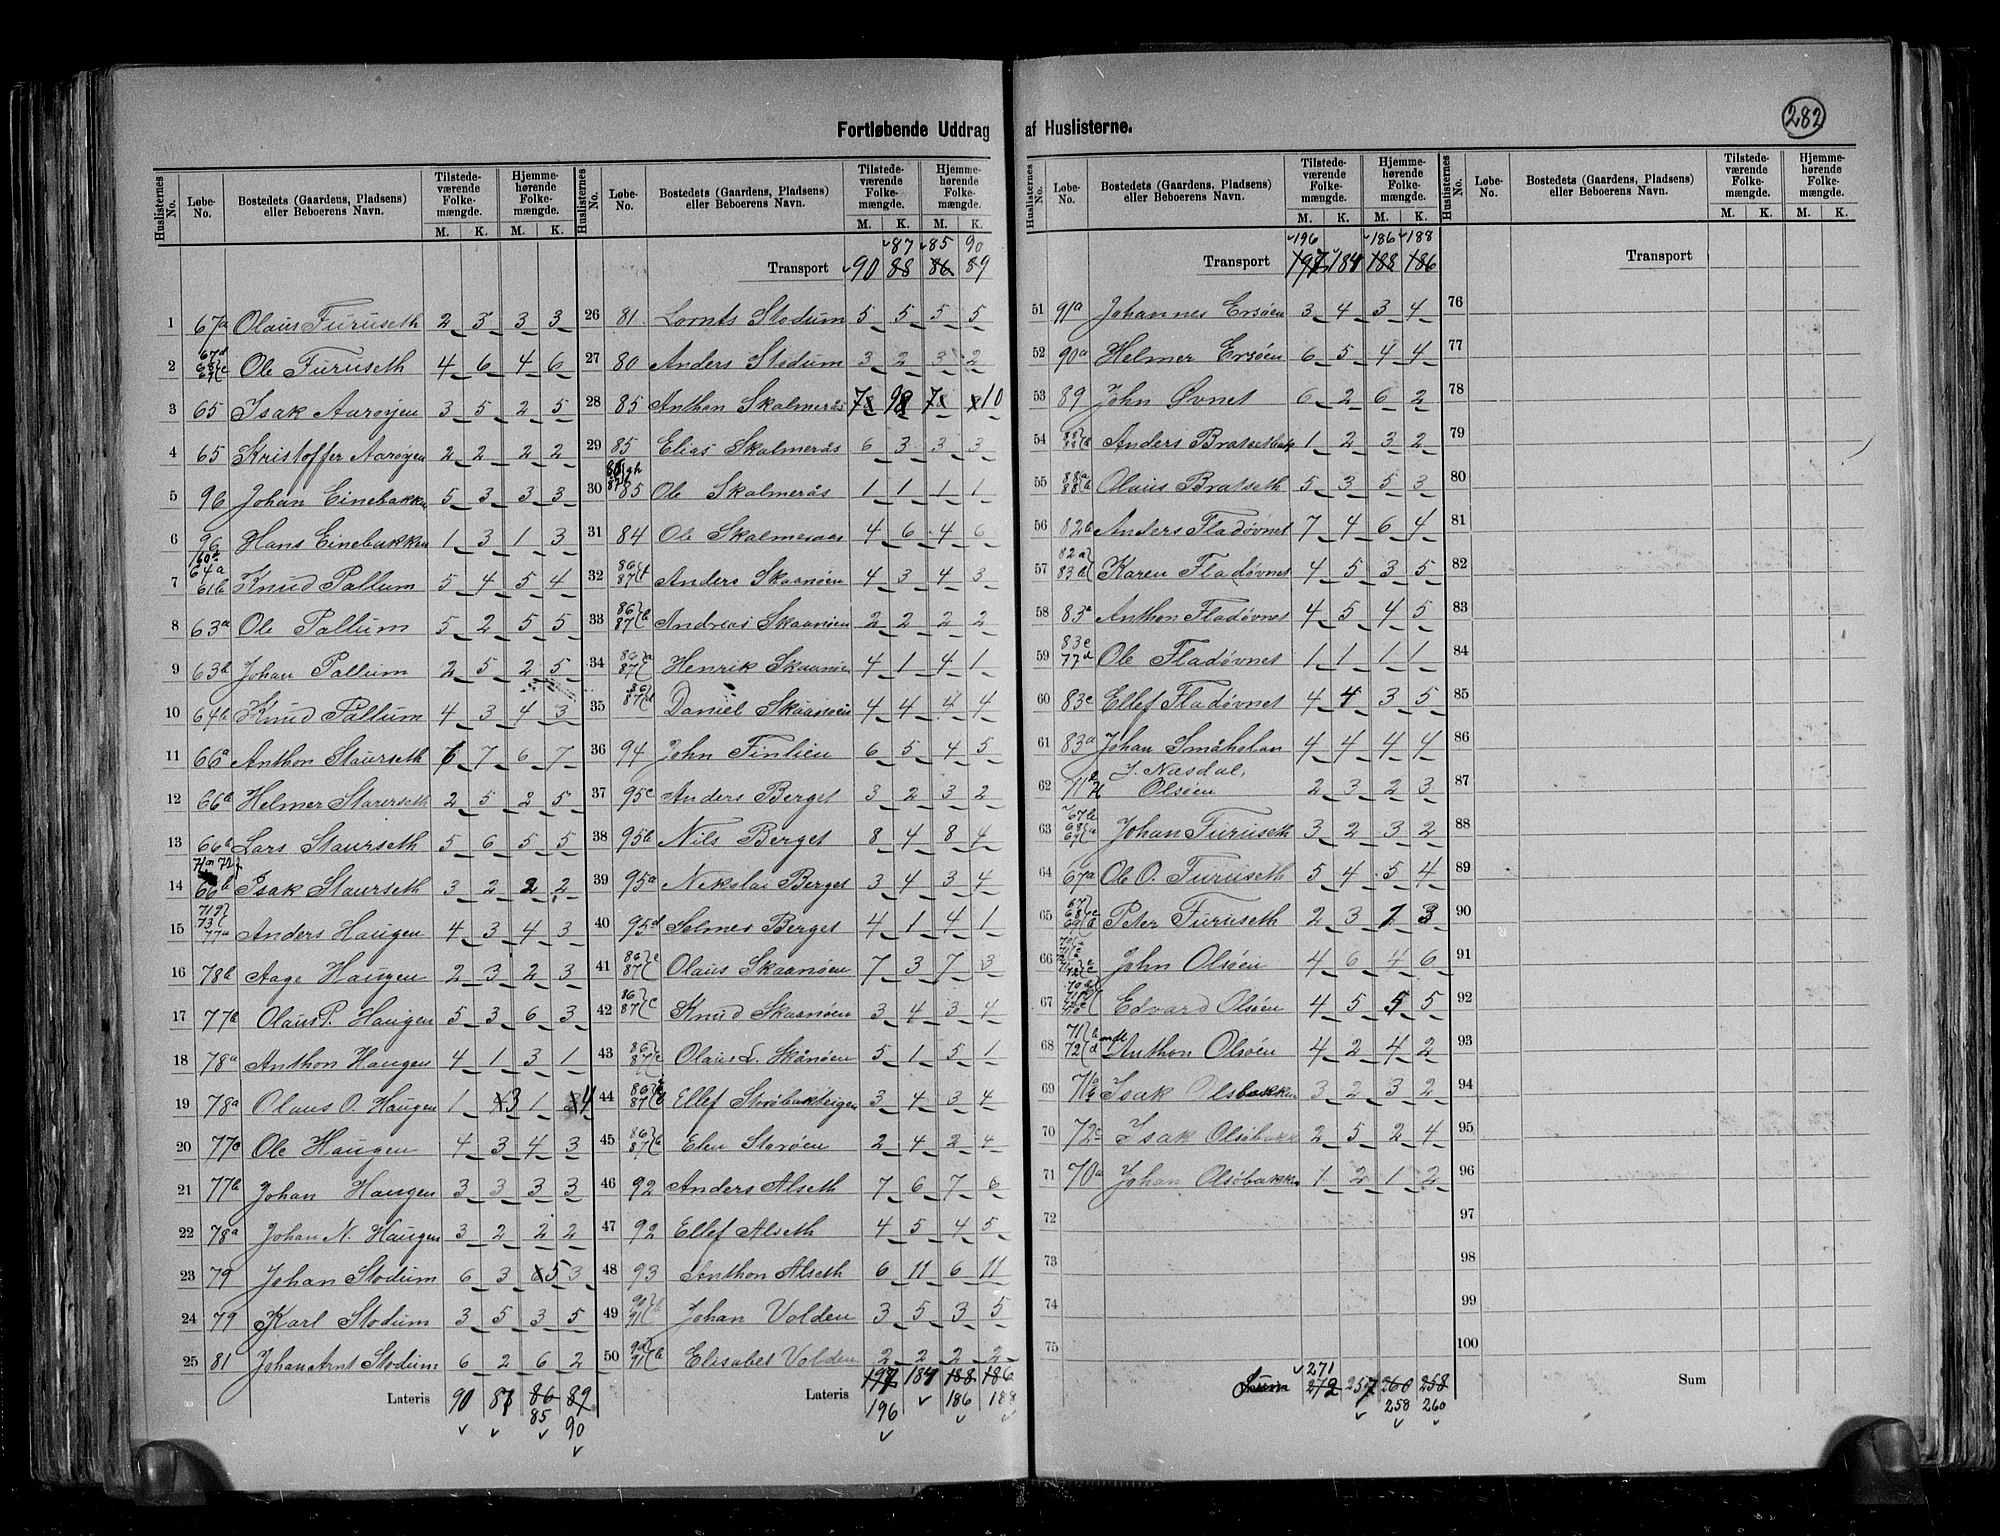 282
Fortløbende Uddrag af Huslisterne.
Huslisternes No. Løbe-No. Bostedets (Gaardens, Pladsens) eller Beboerens Navn. Tilstedeværende Folkemængde. M. K. Hjemmehørende Folkemængde. M. K.
1 67a Olaus Furuseth 2 3 3 3
2 Ole Furuseth 4 6 4 6
3 65 Isak Aarøyen 3 5 2 5
4 65 Kristoffer Aarøyen 2 2 2 2
5 96 Johan Einebakken 5 3 3 3
6 96 Hans Einebakken 1 3 1 3
7 64a 61b Knud Pallum 5 4 5 4
8 63a Ole Pallum 5 2 5 5
9 63b Johan Pallum 2 5 2 5
10 64b Knud Pallum 4 3 4 3
11 66a Anthon Staurseth 7 6 7
12 66a Helmer Staurseth 2 5 2 5
13 66a Lars Staurseth 5 6 5 5
14 66b Isak Staurseth 3 2 2 2
15 77a Anders Haugen 4 3 4 3
16 78b Aage Haugen 2 3 2 3
17 77b Olaus P. Haugen 5 3 6 3
18 78a Anthon Haugen 4 1 3 1
19 78a Olaus O. Haugen 1 3 1 4
20 77c Ole Haugen 4 3 4 3
21 77b Johan Haugen 3 3 3 3
22 78a Johan N. Haugen 3 2 2 2
23 79 Johan Stodum 6 3 5 3
24 79 Karl Stodum 3 5 3 5
25 81 Johan Arnt Stodum 6 2 6 2
Lateris 90 87 86 89
85 90
Huslisternes No. Løbe-No. Bostedets (Gaardens, Pladsens) eller Beboerens Navn. Tilstedeværende Folkemængde. M. K. Hjemmehørende Folkemængde. M. K.
87 85 90
Transport 90 88 86 89
26 81 Lornts Stodum 5 5 5 5
27 80 Anders Stodum 3 2 3 2
28 85 Anthon Skalmerås 7 9 7 10
29 85 Elias Skalmerås 6 3 3 3
30 85 Ole Skalmerås 1 1 1 1
31 84 Ole Skalmeraas 4 6 4 6
32 86 87 f Anders Skaanøen 4 3 4 3
33 86 87 b Andreas Skaanøen 2 2 2 2
34 86 87 a Henrik Skaanøen 4 1 4 1
35 86 87 d Daniel Skaanøen 4 4 4 4
36 94 John Finlien 6 5 4 5
37 95c Anders Berget 3 2 3 2
38 95b Nils Berget 8 4 8 4
39 95a Nikolai Berget 3 4 3 4
40 95d Selmer Berget 4 1 4 1
41 86 87 e Olaus Skaanøen 7 3 7 3
42 86 87 c Knud Skaanøen 3 4 3 4
43 86 87 c Olaus L. Skånøen 5 1 5 1
44 86 87 Ellef Storøbakteigen 3 4 3 4
45 86 87 Elen Storøen 2 4 2 4
46 92 Anders Alseth 7 6 7 6
47 92 Ellef Alseth 4 5 4 5
48 93 Anthon Alseth 6 11 6 11
49 90 91 b Johan Volden 3 5 3 5
50 90 91 b Elisabet Volden 2 2 2 2
Lateris 197 184 188 186
196 186 188
Huslisternes No. Løbe-No. Bostedets (Gaardens, Pladsens) eller Beboerens Navn. Tilstedeværende Folkemængde. M. K. Hjemmehørende Folkemængde. M. K.
196 186 188
Transport 197 184 188 186
51 91a Johannes Ersøen 3 4 3 4
52 90a Helmer Ersøen 6 5 4 4
53 89 John Øvnet 6 2 6 2
54 Anders Bratsethbak 1 2 3 2
55 88a Olaus Bratseth 5 3 5 3
56 82b Anders Fladøvnet 7 4 6 4
57 82a 83d Karen Fladøvnet 4 5 3 5
58 83a Anthon Fladøvnet 4 5 4 5
59 83c 77d Ole Fladøvnet 1 1 1 1
60 83c Ellef Fladøvnet 4 4 3 5
61 83a Johan Småholan 4 4 4 4
62 71 J. Næsdal, Olsøen 2 3 2 3
63 Johan Furuseth 3 2 3 2
64 67a Ole O. Furuseth 5 4 5 4
65 Peter Furuseth 2 3 3
66 John Olsøen 4 6 4 6
67 Edvard Olsøen 4 5 5 5
68 Anthon Olsøen 4 2 4 2
69 Isak Olsbakken 3 2 3 2
70 72 Isak Olsøbakk 2 5 2 4
71 70a Johan Olsøbakken 1 2 1 2
72
73
74
75
271
Sum 272 257 260 258
258 260
Huslisternes No. Løbe-No. Bostedets (Gaardens, Pladsens) eller Beboerens Navn. Tilstedeværende Folkemængde. M. K. Hjemmehørende Folkemængde. M. K.
Transport
76
77
78
79
80
81
82
83
84
85
86
87
88
89
90
91
92
93
94
95
96
97
98
99
100
Sum